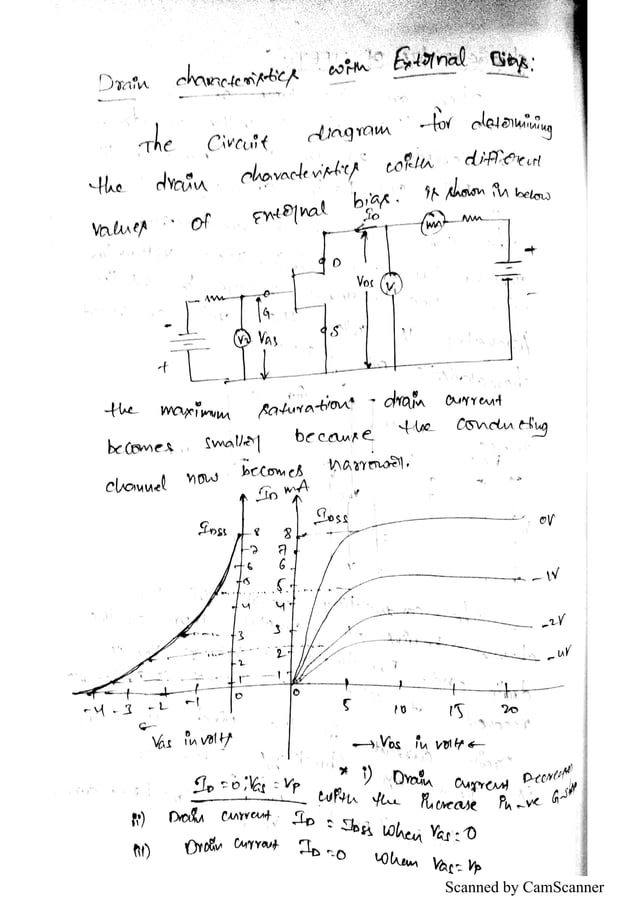 Drain characteristics with External Bias:
The Circuit diagram for determining
the drain characteristics with different
values of External bias. is shown in below
ID
mA
+
D
VDS
V1
-
G
-
V2
VGS
S
+
the maximum saturation drain current
becomes smaller because the conducting
channel now becomes narrower.
ID mA
IDSS
IDSS
8
7
6
5
4
3
2
1
0
8
7
6
5
4
3
2
1
0
0V
-1V
-2V
-4V
-4 -3 -2 -1
5 10 15 20
VGS in volts
→VDS in volts←
ID=0; VGS=VP
* i) Drain current Decrease
with the Increase In -ve G-S
ii) Drain current ID = IDSS when VGS=0
iii) Drain current ID=0 when VGS=VP
Scanned by CamScanner